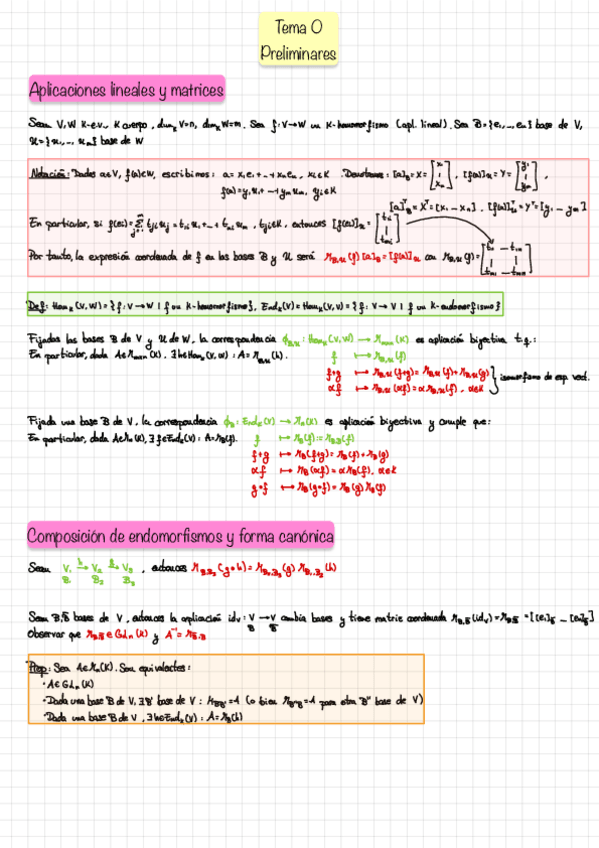 Tema 0
Preliminares
Aplicaciones lineales y matrices
Sean V, W K-e.v., K cuerpo, dim_K V=n, dim_K W=m. Sea f: V→W un K-homomorfismo (apl. lineal). Sea B={e₁,…,eₙ} base de V,
𝒰={u₁,…,uₘ} base de W
Notación: Dados a∈V, f(a)∈W, escribimos: a=x₁e₁+…+xₙeₙ, xᵢ∈K. Denotamos: [a]_B=X=[x₁ ⋮ xₙ], [f(a)]_𝒰=Y=[y₁ ⋮ yₘ]
f(a)=y₁u₁+…+yₘuₘ, yⱼ∈K
[a]ᵀ_B=Xᵀ=[x₁ … xₙ], [f(a)]ᵀ_𝒰=Yᵀ=[y₁ … yₘ]
En particular, si f(eᵢ)=Σⱼ₌₁ᵐ tⱼᵢuⱼ=t₁ᵢu₁+…+tₘᵢuₘ, tⱼᵢ∈K, entonces [f(eᵢ)]_𝒰=[t₁ᵢ ⋮ tₘᵢ]
Por tanto, la expresión coordenada de f en las bases B y 𝒰 será M_B,𝒰(f)[a]_B=[f(a)]_𝒰 con M_B,𝒰(f)=[t₁₁ … t₁ₙ ⋮ tₘ₁ … tₘₙ]
Def: Hom_K(V,W)={f: V→W | f un K-homomorfismo}, End_K(V)=Hom_K(V,V)={f: V→V | f un K-endomorfismo}
Fijadas las bases B de V y 𝒰 de W, la correspondencia ϕ_B,𝒰: Hom_K(V,W) → M_mxn(K) es aplicación biyectiva t.q.:
En particular, dada A∈M_mxn(K), ∃h∈Hom_K(V,W): A=M_B,𝒰(h). f ↦ M_B,𝒰(f)
f+g ↦ M_B,𝒰(f+g)=M_B,𝒰(f)+M_B,𝒰(g)
αf ↦ M_B,𝒰(αf)=αM_B,𝒰(f), α∈K } isomorfismo de esp. vect.
Fijada una base B de V, la correspondencia ϕ_B: End_K(V) → Mₙ(K) es aplicación biyectiva y cumple que:
En particular, dada A∈Mₙ(K), ∃f∈End_K(V): A=M_B(f). f ↦ M_B(f):=M_B,B(f)
f+g ↦ M_B(f+g)=M_B(f)+M_B(g)
αf ↦ M_B(αf)=αM_B(f), α∈K
g∘f ↦ M_B(g∘f)=M_B(g)M_B(f)
Composición de endomorfismos y forma canónica
Sean V₁ →h V₂ →g V₃, entonces M_B₁B₃(g∘h)=M_B₂,B₃(g)M_B₁,B₂(h)
B₁ B₂ B₃
Sean B, B̄ bases de V, entonces la aplicación id_V: V→V cambia bases y tiene matriz coordenada M_B,B̄(id_V)=M_B,B̄=[[e₁]_B̄ … [eₙ]_B̄]
B B̄
Observar que M_B,B̄∈GLₙ(K) y A⁻¹=M_B̄,B
Prop: Sea A∈Mₙ(K). Son equivalentes:
·A∈GLₙ(K)
·Dada una base B de V, ∃B' base de V: M_BB'=A (o bien M_B''B=A para otra B'' base de V)
·Dada una base B de V, ∃h∈End_K(V): A=M_B(h)